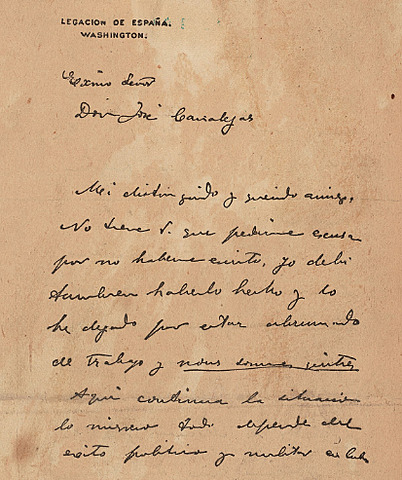 LEGACION DE ESPAÑA.
WASHINGTON.
Exmo Señor
Don José Canalejas
Mi distinguido y querido amigo,
No tiene V. que pedirme escusa
por no haberme escrito, yo debi
tambien haberlo hecho y lo
he dejado por estar abrumado
de trabajo y nous sommes quittes
Aqui continua la situacion
lo mismo todo depende del
exito politico y militar en Cuba